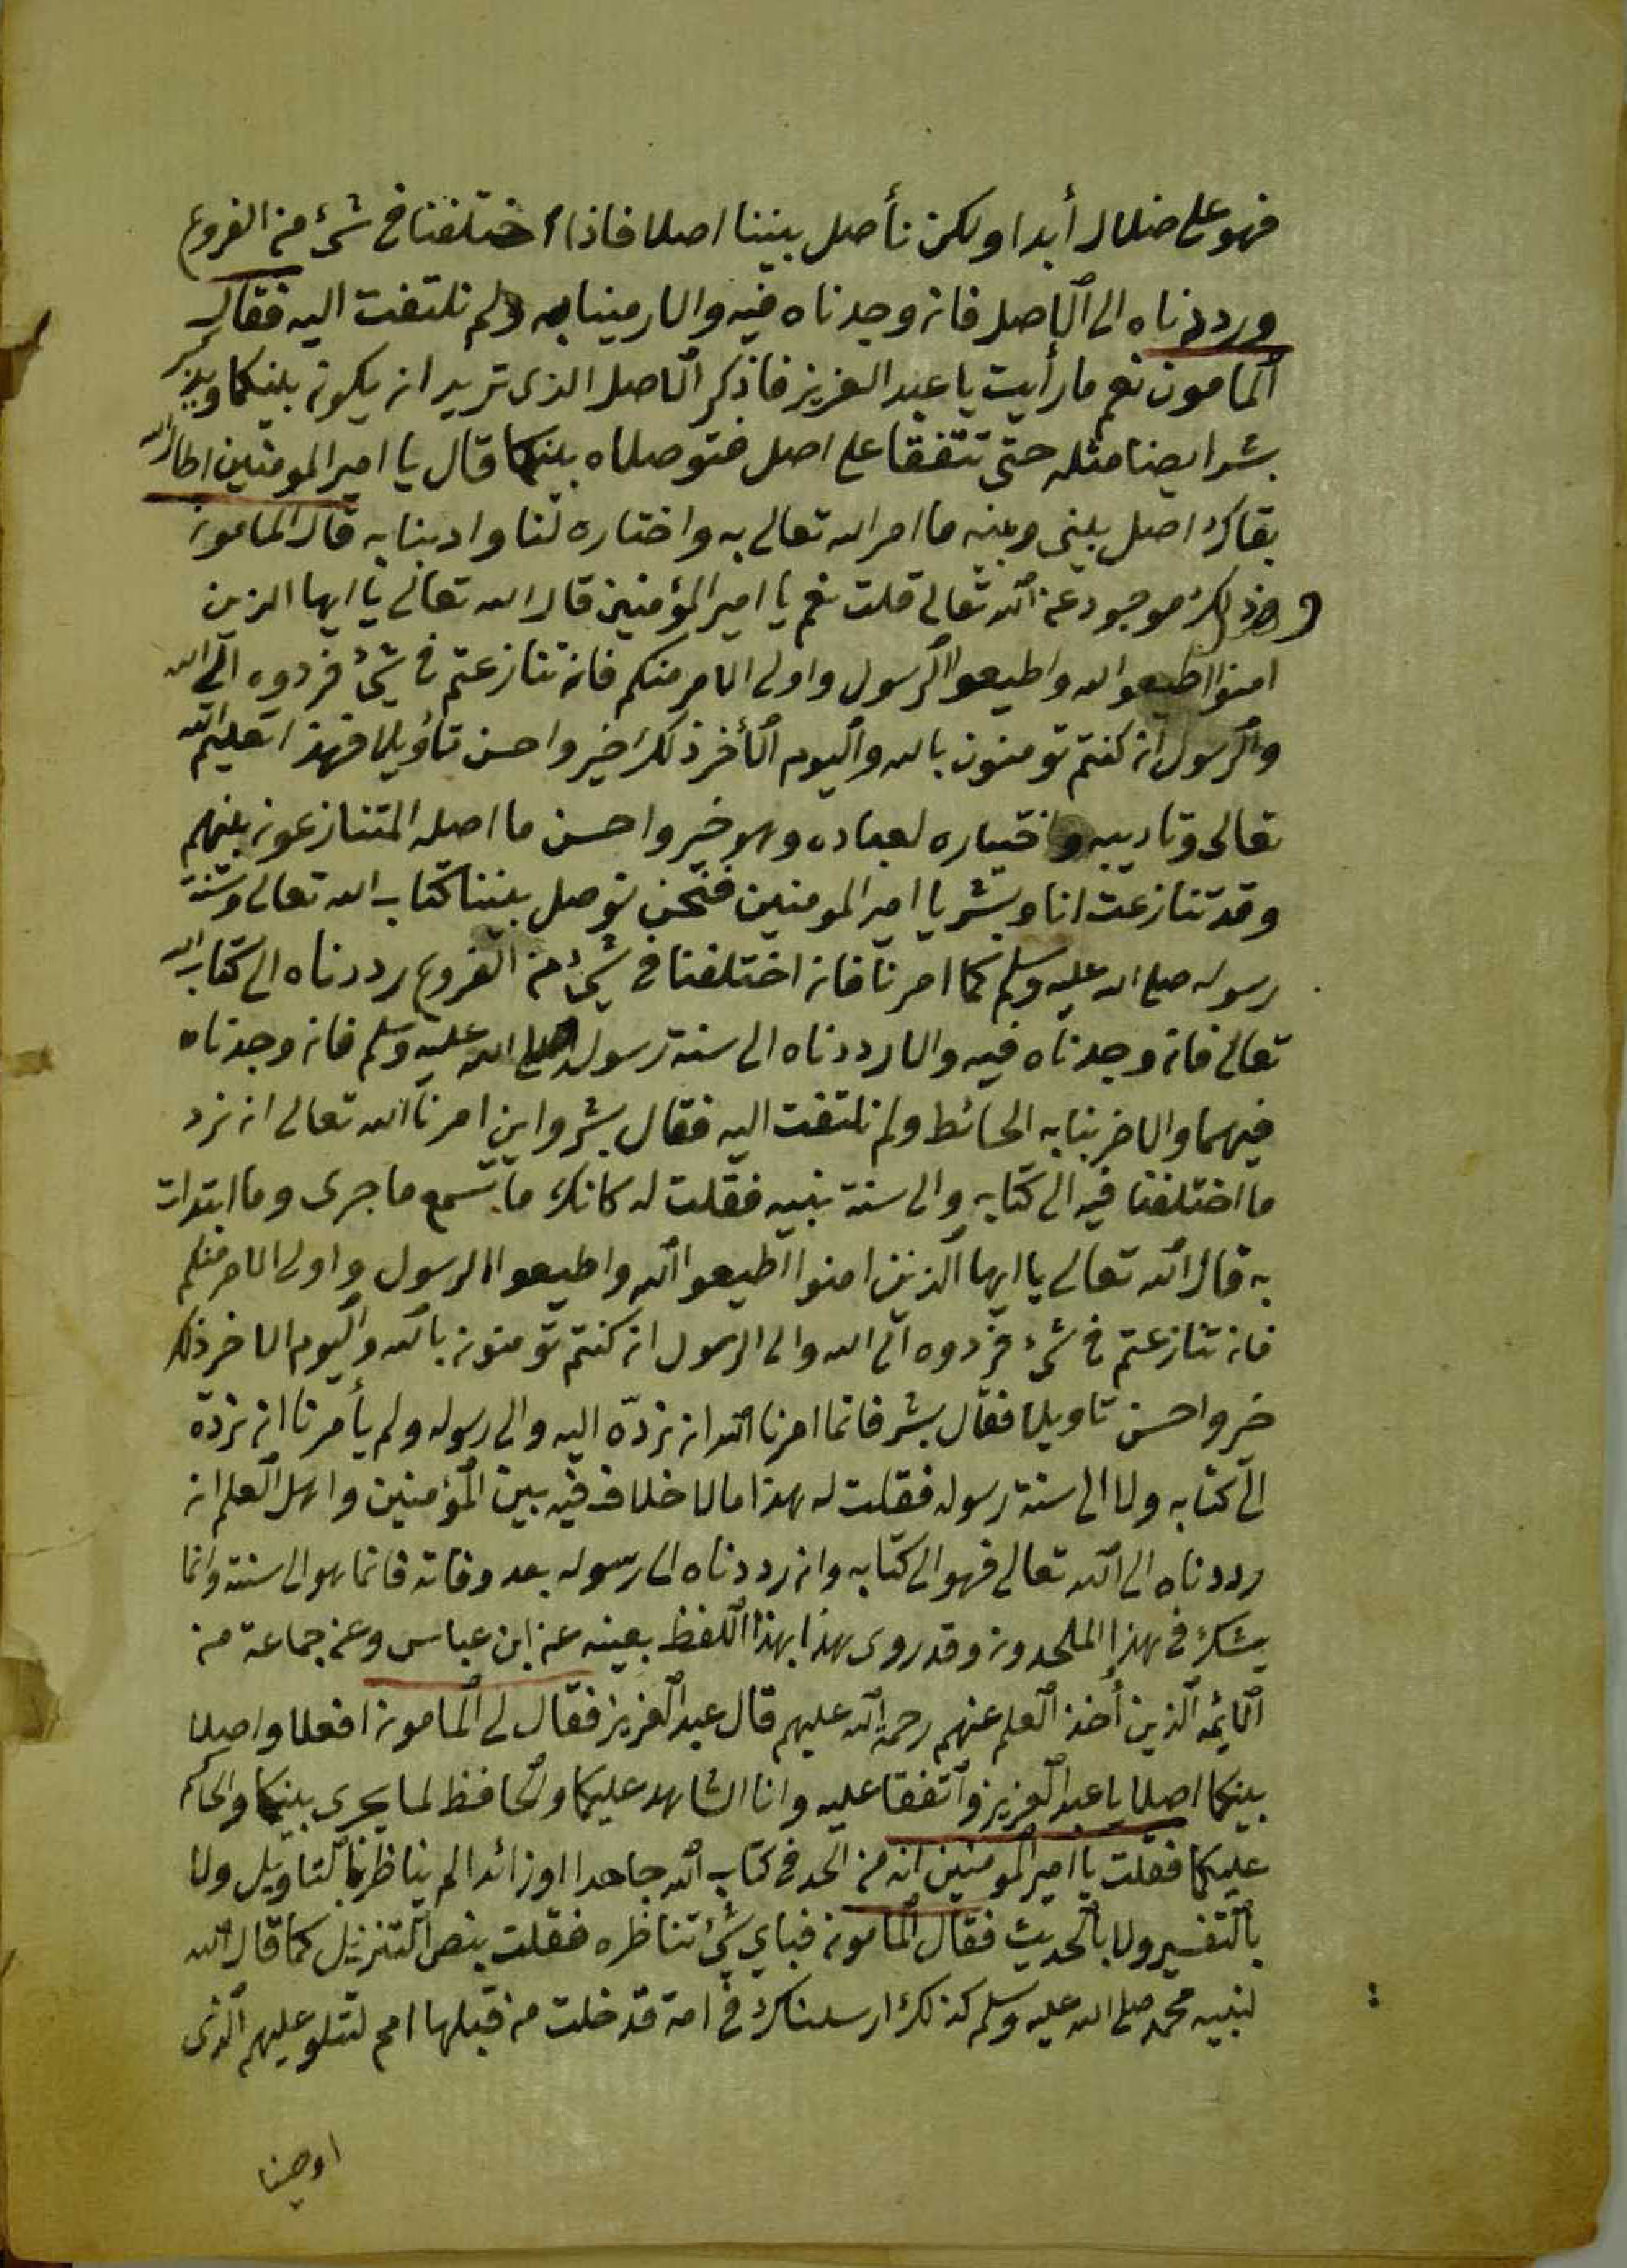 فهو على ضلال أبدا ولكن نأصل بيننا اصلا فاذا اختلفنا في شئ من الفروع
ورددناه الى الاصل فان وجدناه فيه والا رمينا به ولم نلتفت اليه فقال
المامون نعم ما رأيت يا عبد العزيز فاذكر الاصل الذى تريد ان يكون بينكما ويذكر
بشر ايضا مثله حتى تتفقا على اصل فتوصلاه بينكما قال يا امير المومنين اطال الله
بقاك اصل بينى وبينه ما امر الله تعالى به واختاره لنا وادبنا به قال المامون
وذلك موجود عن الله تعالى قلت نعم يا امير المؤمنين قال الله تعالى يا ايها الذين
امنوا اطيعوا الله واطيعوا الرسول واولى الامر منكم فان تنازعتم في شئ فردوه الى الله
والرسول ان كنتم تومنون بالله واليوم الأخر ذلك خير واحسن تاؤيلا فهذا تعليم الله
تعالى وتاديبه واختياره لعباده وهو خير واحسن ما اصله المتنازعون بينهم
وقد تنازعت انا وبشر يا امير المومنين فنحن نوصل بيننا كتاب الله تعالى وسنة
رسوله صلى الله عليه وسلم كما امرنا فان اختلفنا في شئ من الفروع رددناه الى كتاب الله
تعالى فان وجدناه فيه والا رددناه الى سنة رسول الله صلى الله عليه وسلم فان وجدناه
فيهما والا ضربنا به الحائط ولم نلتفت اليه فقال بشر واين امرنا الله تعالى ان نرد
ما اختلفنا فيه الى كتابه والى سنة نبيه فقلت له كانك ما تسمع ما جرى وما ابتدات
به قال الله تعالى يا ايها الذين امنوا اطيعوا الله واطيعوا الرسول واولى الامر منكم
فان تنازعتم في شئ فردوه الى الله والى الرسول ان كنتم تومنون بالله واليوم الاخر ذلك
خير واحسن تاويلا فقال بشر فانما امرنا الله ان نردّه اليه والى رسوله ولم يأمرنا ان نردّه
الى كتابه ولا الى سنة رسوله فقلت له هذا ما لا خلاف فيه بين المؤمنين واهل العلم ان
رددناه الى الله تعالى فهو الى كتابه وان رددناه الى رسوله بعد وفاته فانما هو الى سنته وانما
يشك في هذا الملحدون وقد روى هذا بهذا اللفظ بعينه عن ابن عباس وعن جماعة من
الايمة الذين أخذ العلم عنهم رحمة الله عليهم قال عبد العزيز فقال لى المامون افعلا واصلا
بينكما اصلا يا عبد العزيز واتفقا عليه وانا الشاهد عليكما والحافظ لما يجرى بينكما والحاكم
عليكما فقلت يا امير المومنين انه من الحد في كتاب الله جاحدا او زائدا لم يناظر بالتاويل ولا
بالتفسير ولا بالحديث فقال المامون فباي شئ تناظره فقلت بنص التنزيل كما قال الله
لنبيه محمد صلى الله عليه وسلم كذلك ارسلناك في امة قد خلت من قبلها امم لتتلو عليهم الذى
اوحينا